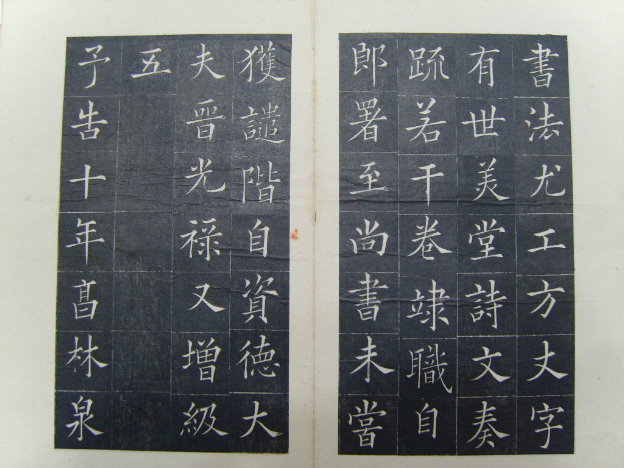 書法尤工方丈字
有世美堂詩文奏
疏若干卷䇐職自
郎署至尚書未嘗
獲譴階自資徳大
夫晉光祿又增級
五
予告十年髙林泉